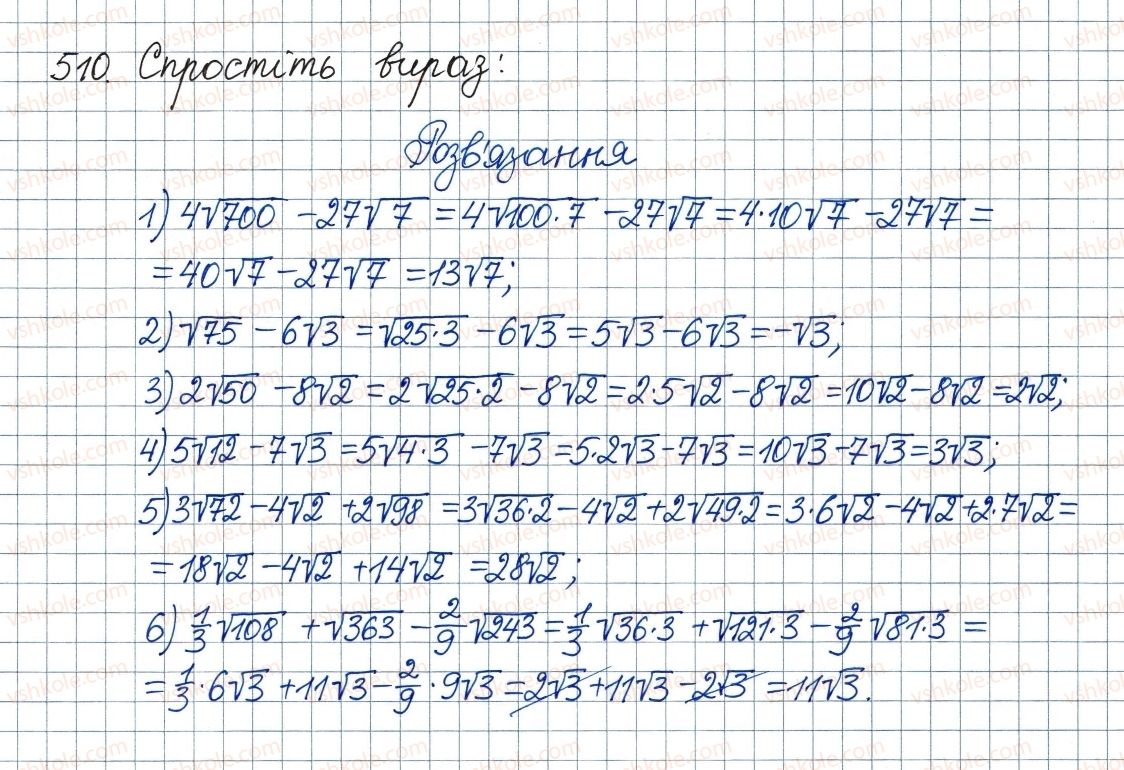 510. Спростіть вираз:
Розв'язання
1) 4√700 - 27√7 = 4√100·7 - 27√7 = 4·10√7 - 27√7 =
= 40√7 - 27√7 = 13√7;
2) √75 - 6√3 = √25·3 - 6√3 = 5√3 - 6√3 = -√3;
3) 2√50 - 8√2 = 2√25·2 - 8√2 = 2·5√2 - 8√2 = 10√2 - 8√2 = 2√2;
4) 5√12 - 7√3 = 5√4·3 - 7√3 = 5·2√3 - 7√3 = 10√3 - 7√3 = 3√3;
5) 3√72 - 4√2 + 2√98 = 3√36·2 - 4√2 + 2√49·2 = 3·6√2 - 4√2 + 2·7√2 =
= 18√2 - 4√2 + 14√2 = 28√2;
6) 1/3 √108 + √363 - 2/9 √243 = 1/3 √36·3 + √121·3 - 2/9 √81·3 =
= 1/3 · 6√3 + 11√3 - 2/9 · 9√3 = 2√3 + 11√3 - 2√3 = 11√3.